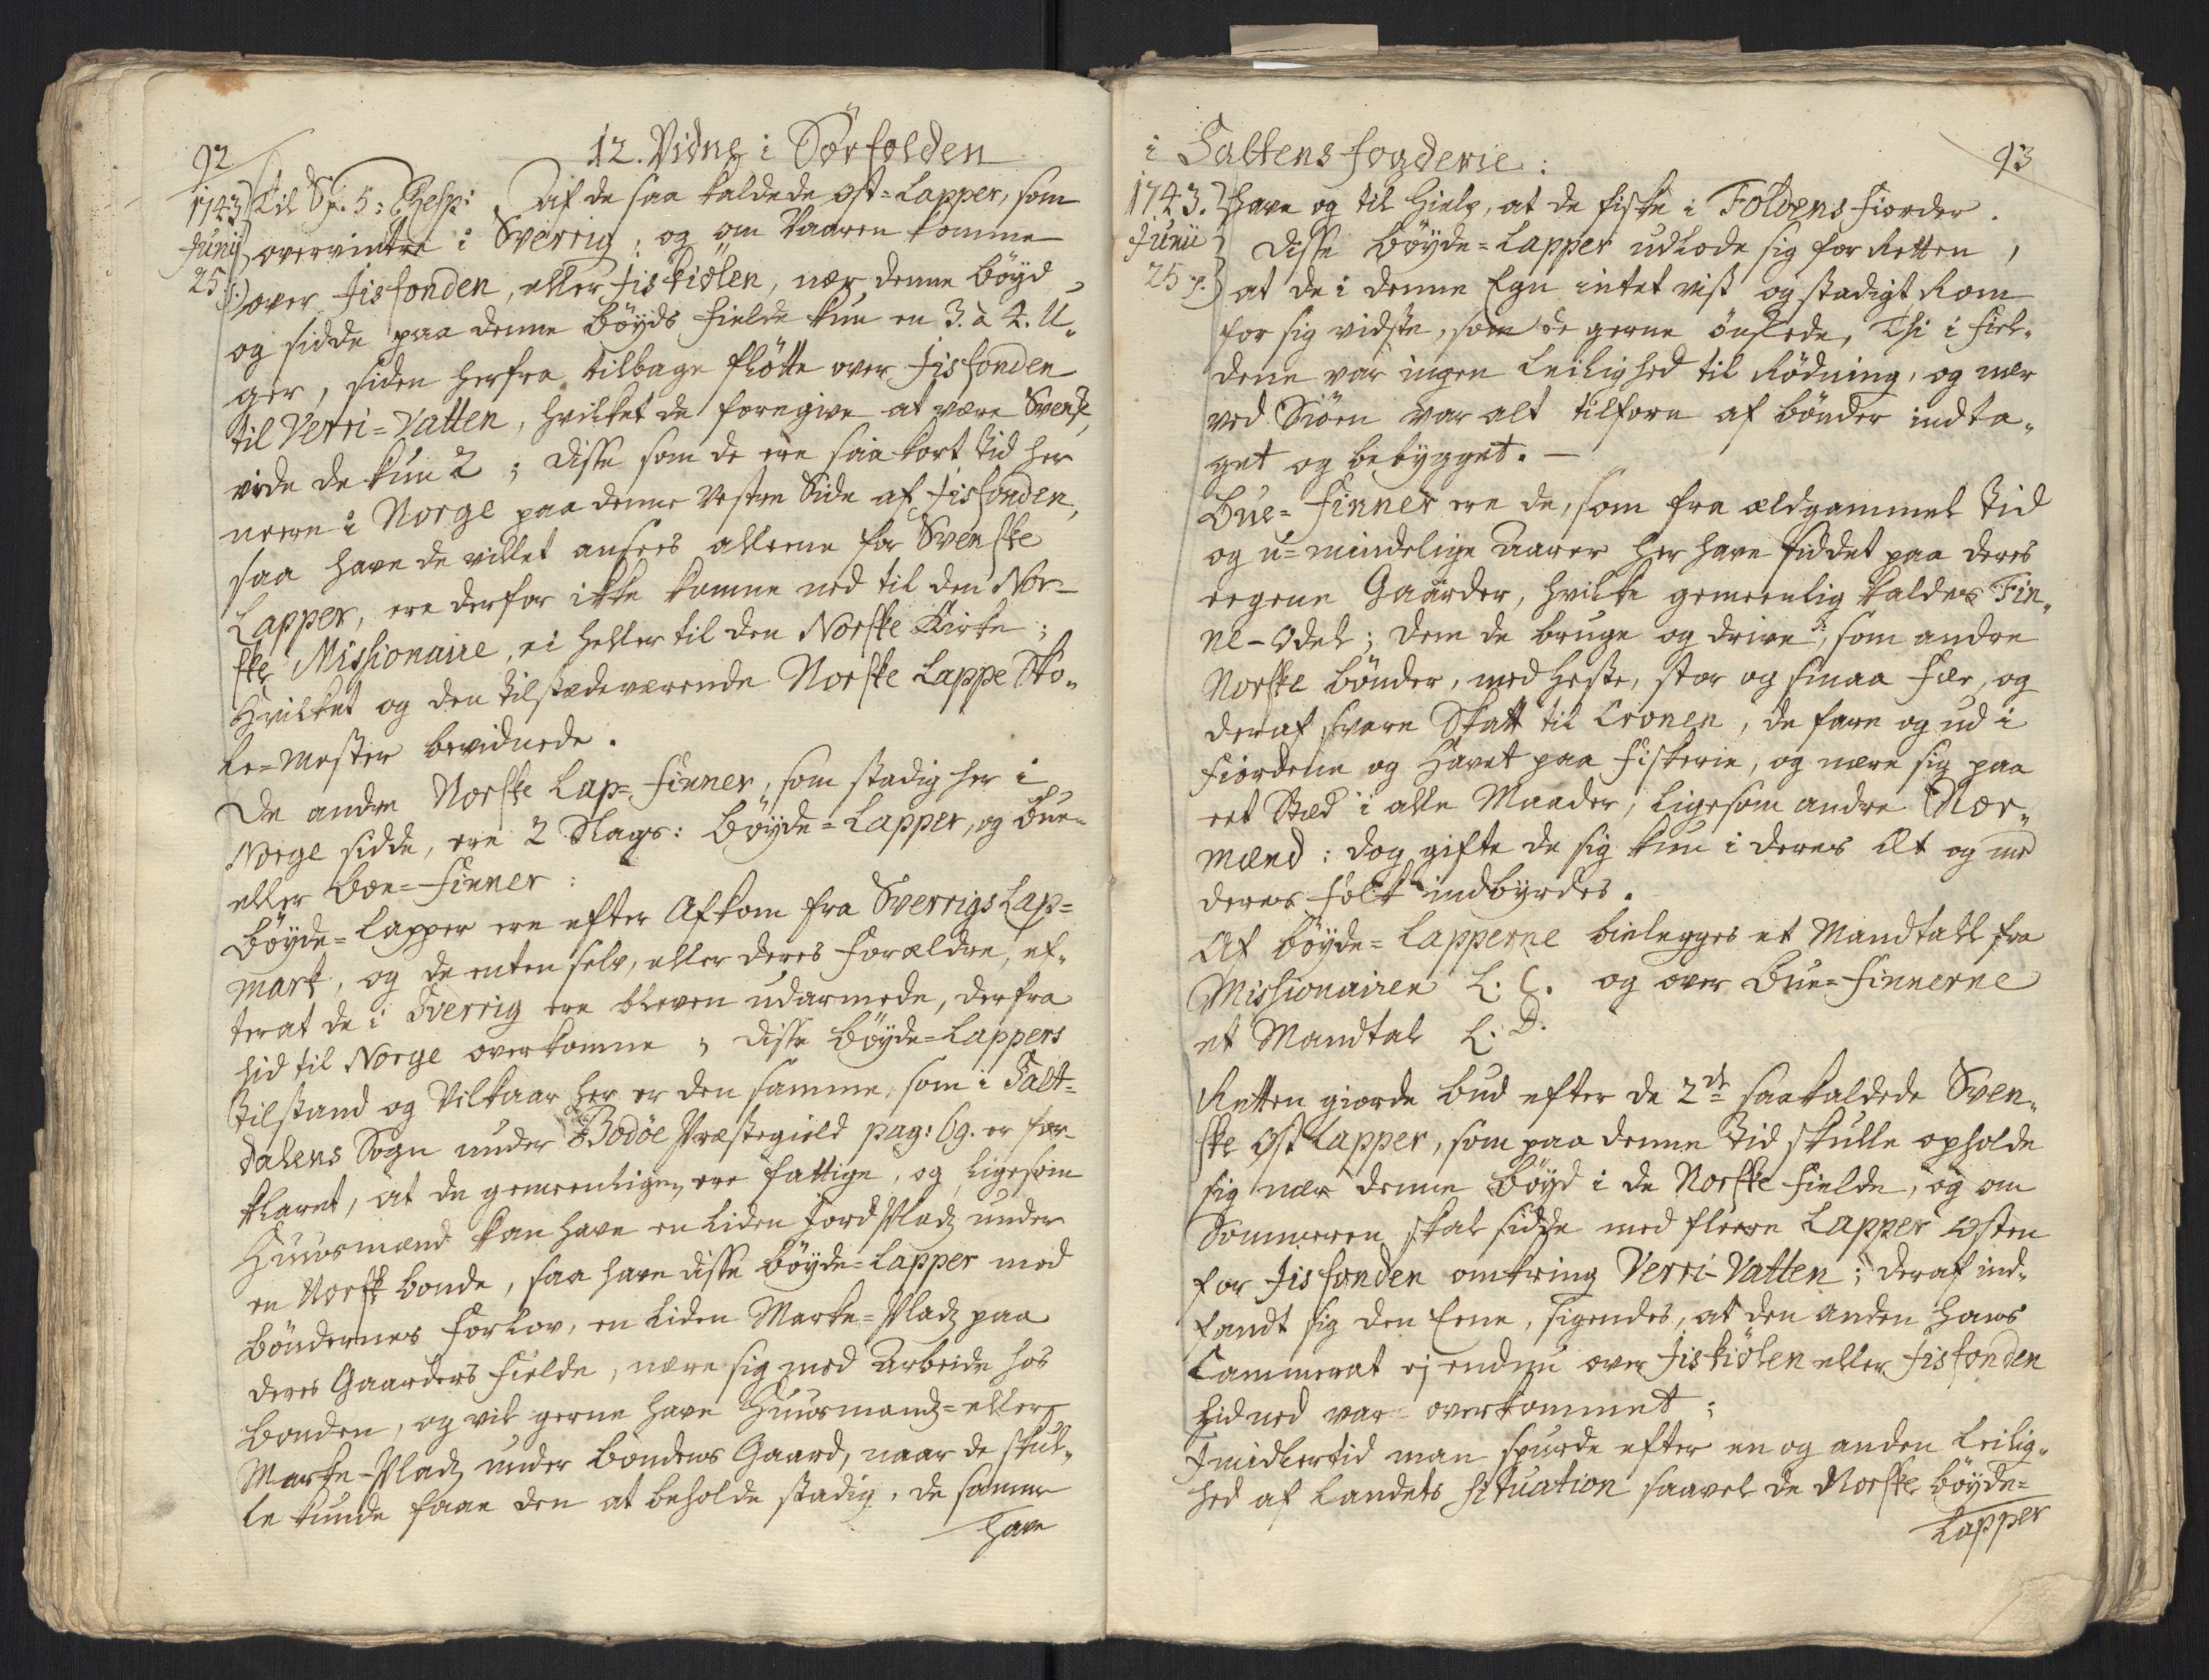 92
12. Vidne i Sørfolden
1743 Til Sp. 5: Resp: Af de saa kaldede Øst=Lapper, som
Junii overvintre i Sverrig, og om Vaaren komme
25. over Jisfonden, eller Jiskiölen, nær denne böyd
og sidde paa denne böyds Fielde kun en 3. à 4. U„
ger, siden herfra tilbage flötte over Jisfonden
til Verri=Vatten, hvilket de foregive at være Svensk,
vide de kun 2; disse som de ere saa kort tid her
neere i Norge paa denne vestre Side af Jisfonden,
saa have de villet ansees alleene for Svenske
Lapper, ere derfor ikke komne ned til den Nor-
ske Missionaire, ei heller til den Norske Kirke;
hvilket og den tilstædeværende Norske Lappe Sko„
le=Mester bevidnede.
De andre Norske Lap=Finner, som stadig her i
Norge sidde, ere 2 Slags: böyde=Lapper, og bue-
eller boe=Finner:
Böyde=Lapper ere efter Afkom fra Sverrigs Lap=
mark, og de enten selv, eller deres Forældre, ef„
terat de i Sverrig ere bleven udarmede, derfra
hid til Norge overkomne; disse böyde=Lappers
tilstand og Vilkaar her er den samme, som i Salt=
dalens Sogn under Bodöe Præstegield pag: 69. er for-
klaret, at de gemeenligen ere fattige, og ligesom
Huusmænd kan have en liden Jord Pladz under
en Norsk bonde, saa have disse böyde=Lapper med
böndernes Forlov, en liden Marke=Pladz paa
deres Gaarders Fielde, nære sig med Arbeide hos
bonden, og vil gerne have Huusmandz= eller
Marke-Pladz under bondens Gaard, naar de skul„
le kunde faae den at beholde stadig, de samme
have
i Saltens fogderie:
93
1743. have og til Hielp, at de fiske i Foldens Fiorder.
Junii Disse böyde=Lapper udlode sig for Retten,
25 at de i denne Egn intet vist og stadigt Rom
for sig vidste, som de gerne önskede, Thi i Fiel„
dene var ingen Leilighed til Rödning, og nær
ved Siöen var alt tilforn af bönder indta„
get og bebygget. —
Bue=Finner ere de, som fra ældgammel tid
og u=mindelige Aarer her have siddet paa deres
eegene Gaarder, hvilke gemeenlig kaldes Fin„
ne-Odel; dem de bruge og drive, som andre
Norske bönder, med Heste, stor og smaa Fæe, og
deraf svare Skatt til Cronen, de fare og ud i
Fiordene og Havet paa Fiskerie, og nære sig paa
eet Stæd i alle Maader, ligesom andre Nor„
mænd: dog gifte de sig kun i deres Æt og med
deres Folk indbyrdes.
Af böyde=Lapperne bielegges et Mandtall fra
Missionairen L: C. og over bue=Finnerne
et Mandtal L: D.
Retten giorde bud efter de 2de saakaldede Sven„
ske Øst Lapper, som paa denne tid skulle opholde
sig nær denne böyd i de Norske Fielde, og om
Sommeren skal sidde med fleere Lapper østen
for Jisfonden omkring Verri-Vatten; deraf ind„
fandt sig den Eene, sigendes, at den anden hans
Cammerat ej endnu over Jiskiölen eller Jisfonden
hidned var overkommet;
Imidlertid man spurde efter en og anden Leilig„
hed af Landets Situation saavel de Norske böyde=
Lapper